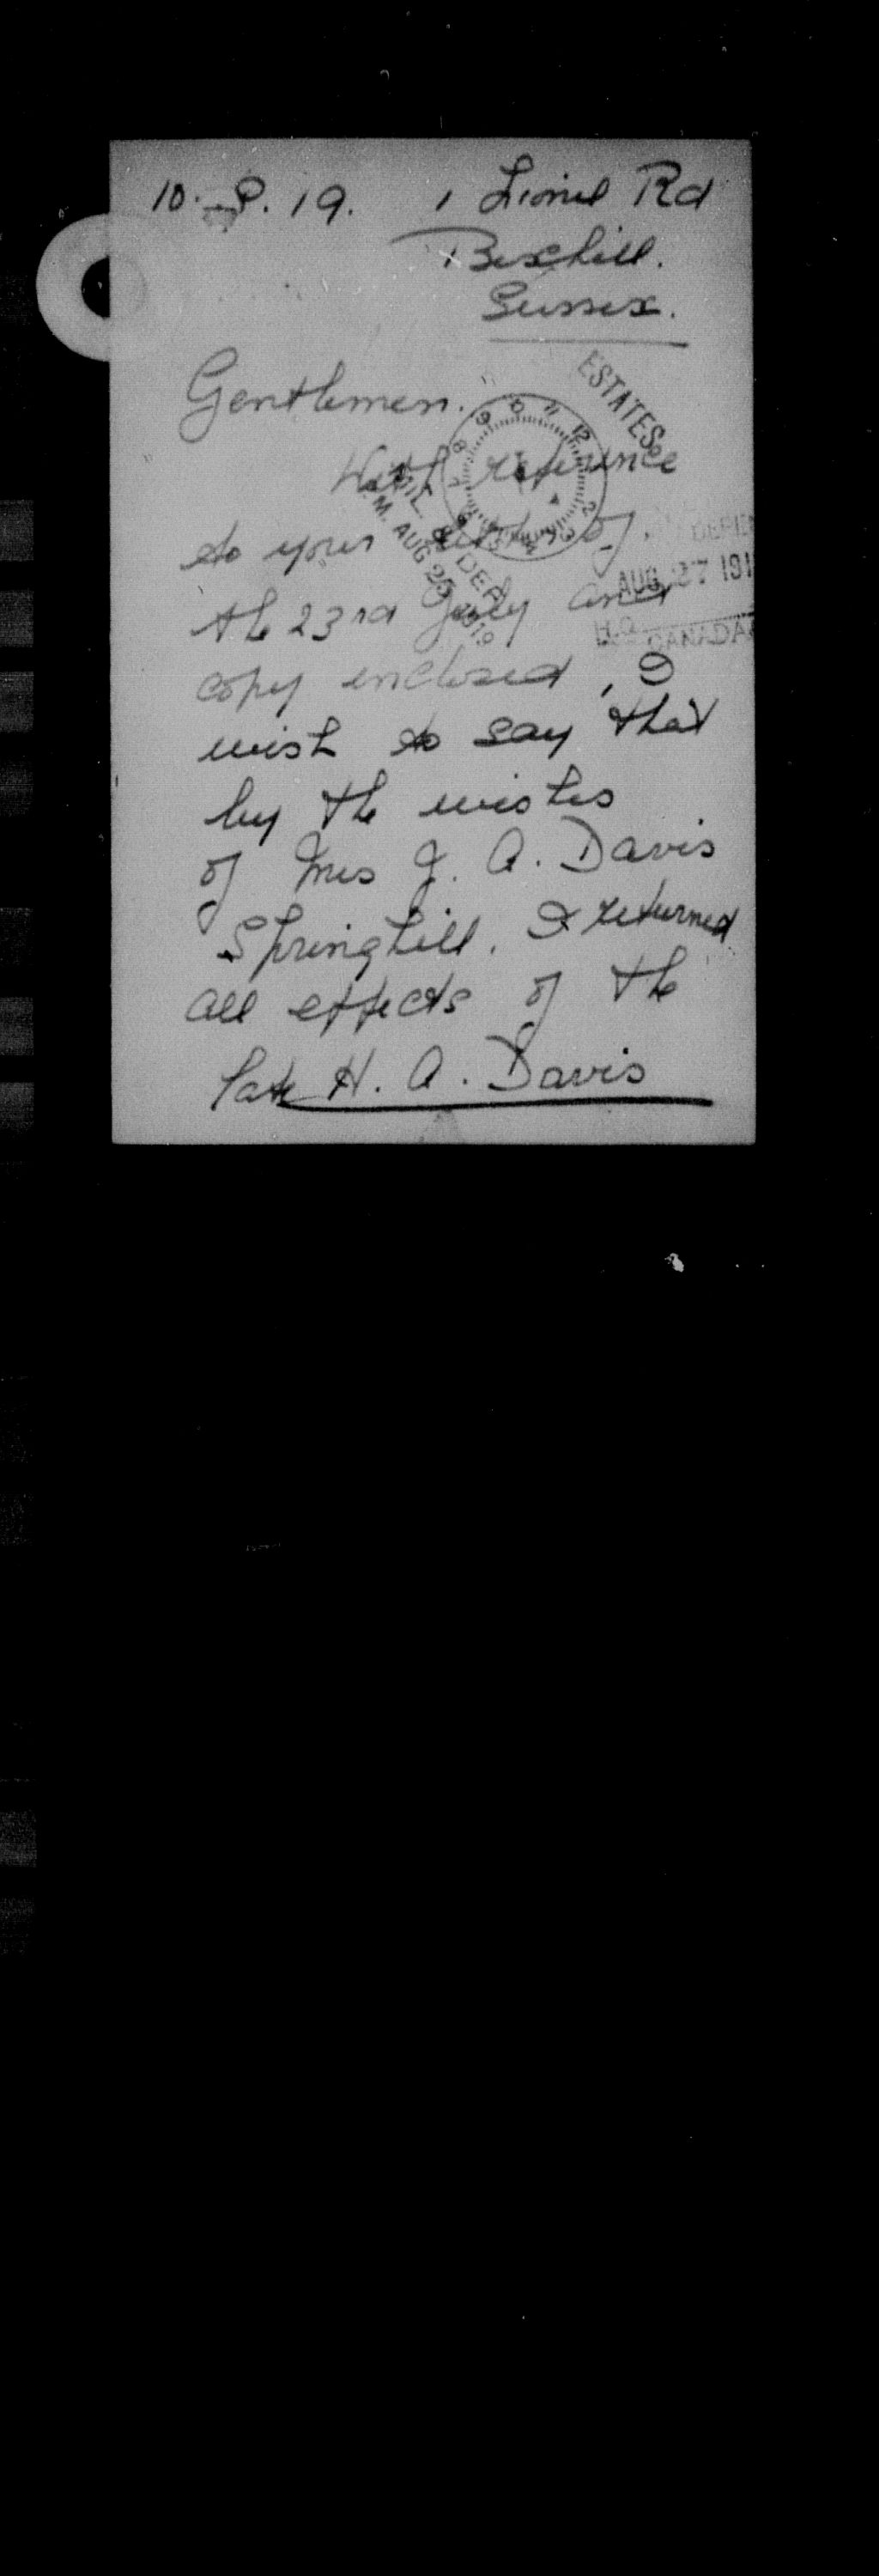 10. 8. 19. 1 Lionel Rd
Bexhill.
Sussex.
Gentlemen.
ESTATES
With reference
to your letter of
AUG 27 191
the 23rd July and
CANADA
copy enclosed, I
wish to say that
by the wishes
of Mrs J. A. Davis
Springhill. I returned
all effects of the
late H. A. Davis